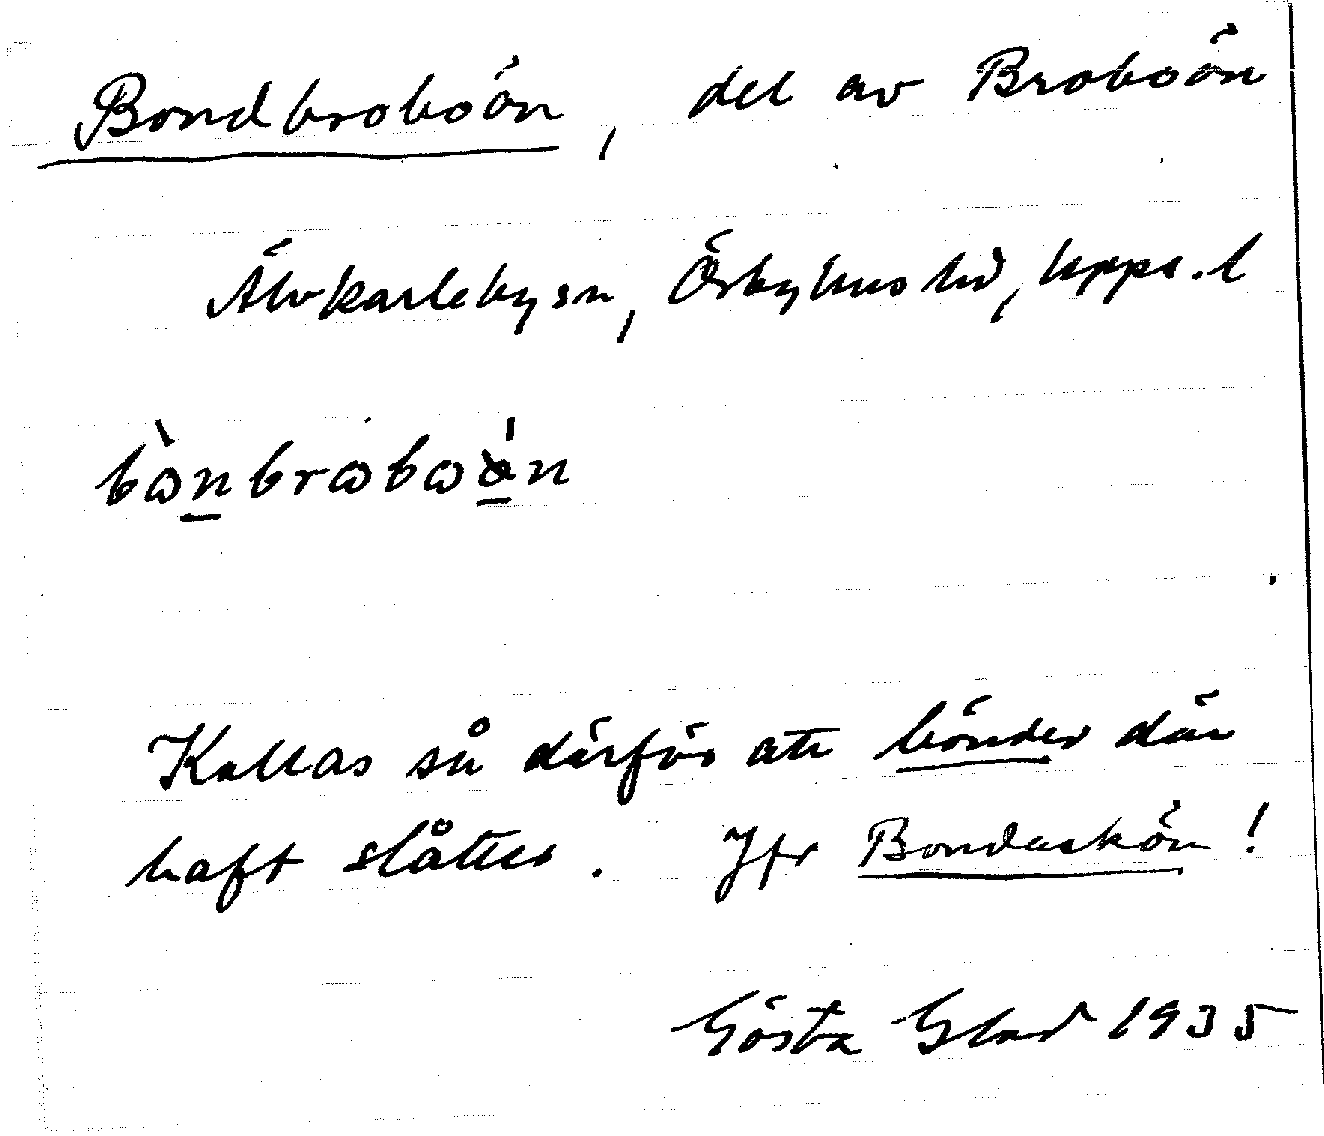 Bondbroboön, del av Broboön
Älvkarleby sn, Örbyhus hd, Upps. l
bὼn̲brωbωö̲́n
Kallas så därför att bönder där
haft slåtter. Jfr Bondaskön!
Gösta Glad 1935